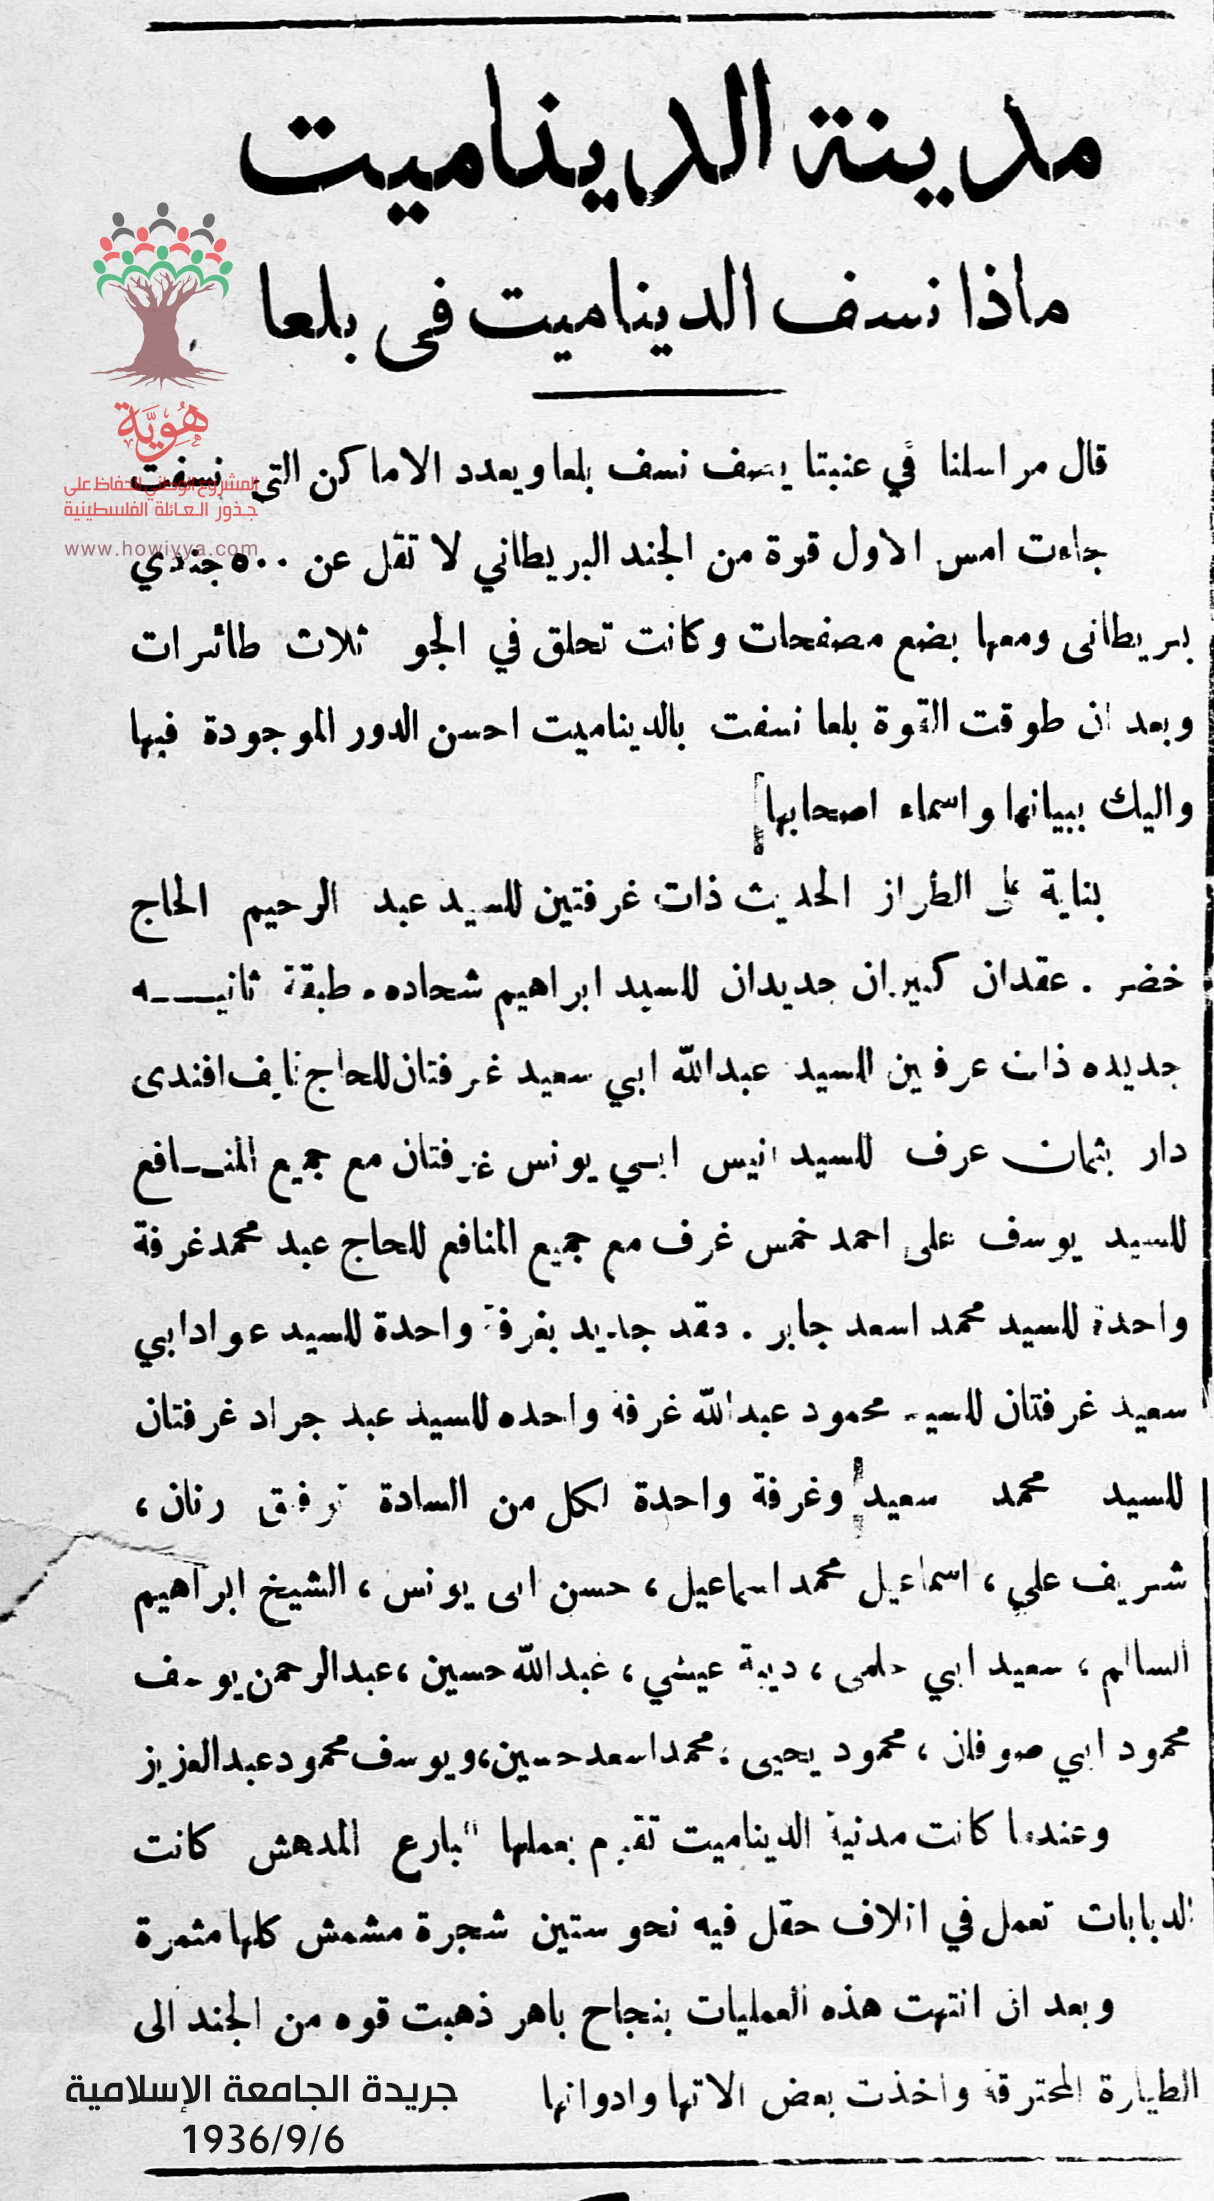 مدينة الديناميت
ماذا نسف الديناميت فى بلعا
هُوِيَّة
المشروع الوطني للحفاظ على
جذور العائلة الفلسطينية
www.howiyya.com
قال مراسلنا في عنبتا يصف نسف بلعا ويعدد الاماكن التى نسفت
جاءت امس الاول قوة من الجند البريطاني لا تقل عن ٥٠٠ جندي
بريطانى ومعها بضع مصفحات وكانت تحلق في الجو ثلاث طائرات
وبعد ان طوقت القوة بلعا نسفت بالديناميت احسن الدور الموجودة فيها
واليك ببيانها واسماء اصحابها
بناية على الطراز الحديث ذات غرفتين للسيد عبد الرحيم الحاج
خضر . عقدان كبيران جديدان للسيد ابراهيم شحاده . طبقة ثانيـــه
جديده ذات غرفتين للسيد عبدالله ابي سعيد غرفتان للحاج نايف افندى
دار بثمان غرف للسيد انيس ابـي يونس غرفتان مع جميع المنــافع
للسيد يوسف على احمد خمس غرف مع جميع المنافع للحاج عبد محمد غرفة
واحدة للسيد محمد اسعد جابر . عقد جديد بغرفة واحدة للسيد عواد ابي
سعيد غرفتان للسيد محمود عبدالله غرفة واحده للسيد عبد جراد غرفتان
للسيد محمد سعيد وغرفة واحدة لكل من السادة توفيق
شريف علي ، اسماعيل محمد اسماعيل ، حسن ابى يونس ، الشيخ ابراهيم
السالم ، سعيد ابي حلمى ، ديبة عيشي ، عبدالله حسين ، عبدالرحمن يوسف
محمود ابي صوفان ، محمود يحيى ، محمد اسعد حسين ، ويوسف محمود عبدالعزيز
وعندما كانت مدنية الديناميت تقوم بعملها البارع المدهش كانت
الدبابات تعمل في اتلاف حقل فيه نحو ستين شجرة مشمش كلها مثمرة
وبعد ان انتهت هذه العمليات بنجاح باهر ذهبت قوه من الجند الى
الطيارة المحترقة واخذت بعض الاتها وادواتها
جريدة الجامعة الإسلامية
1936/9/6